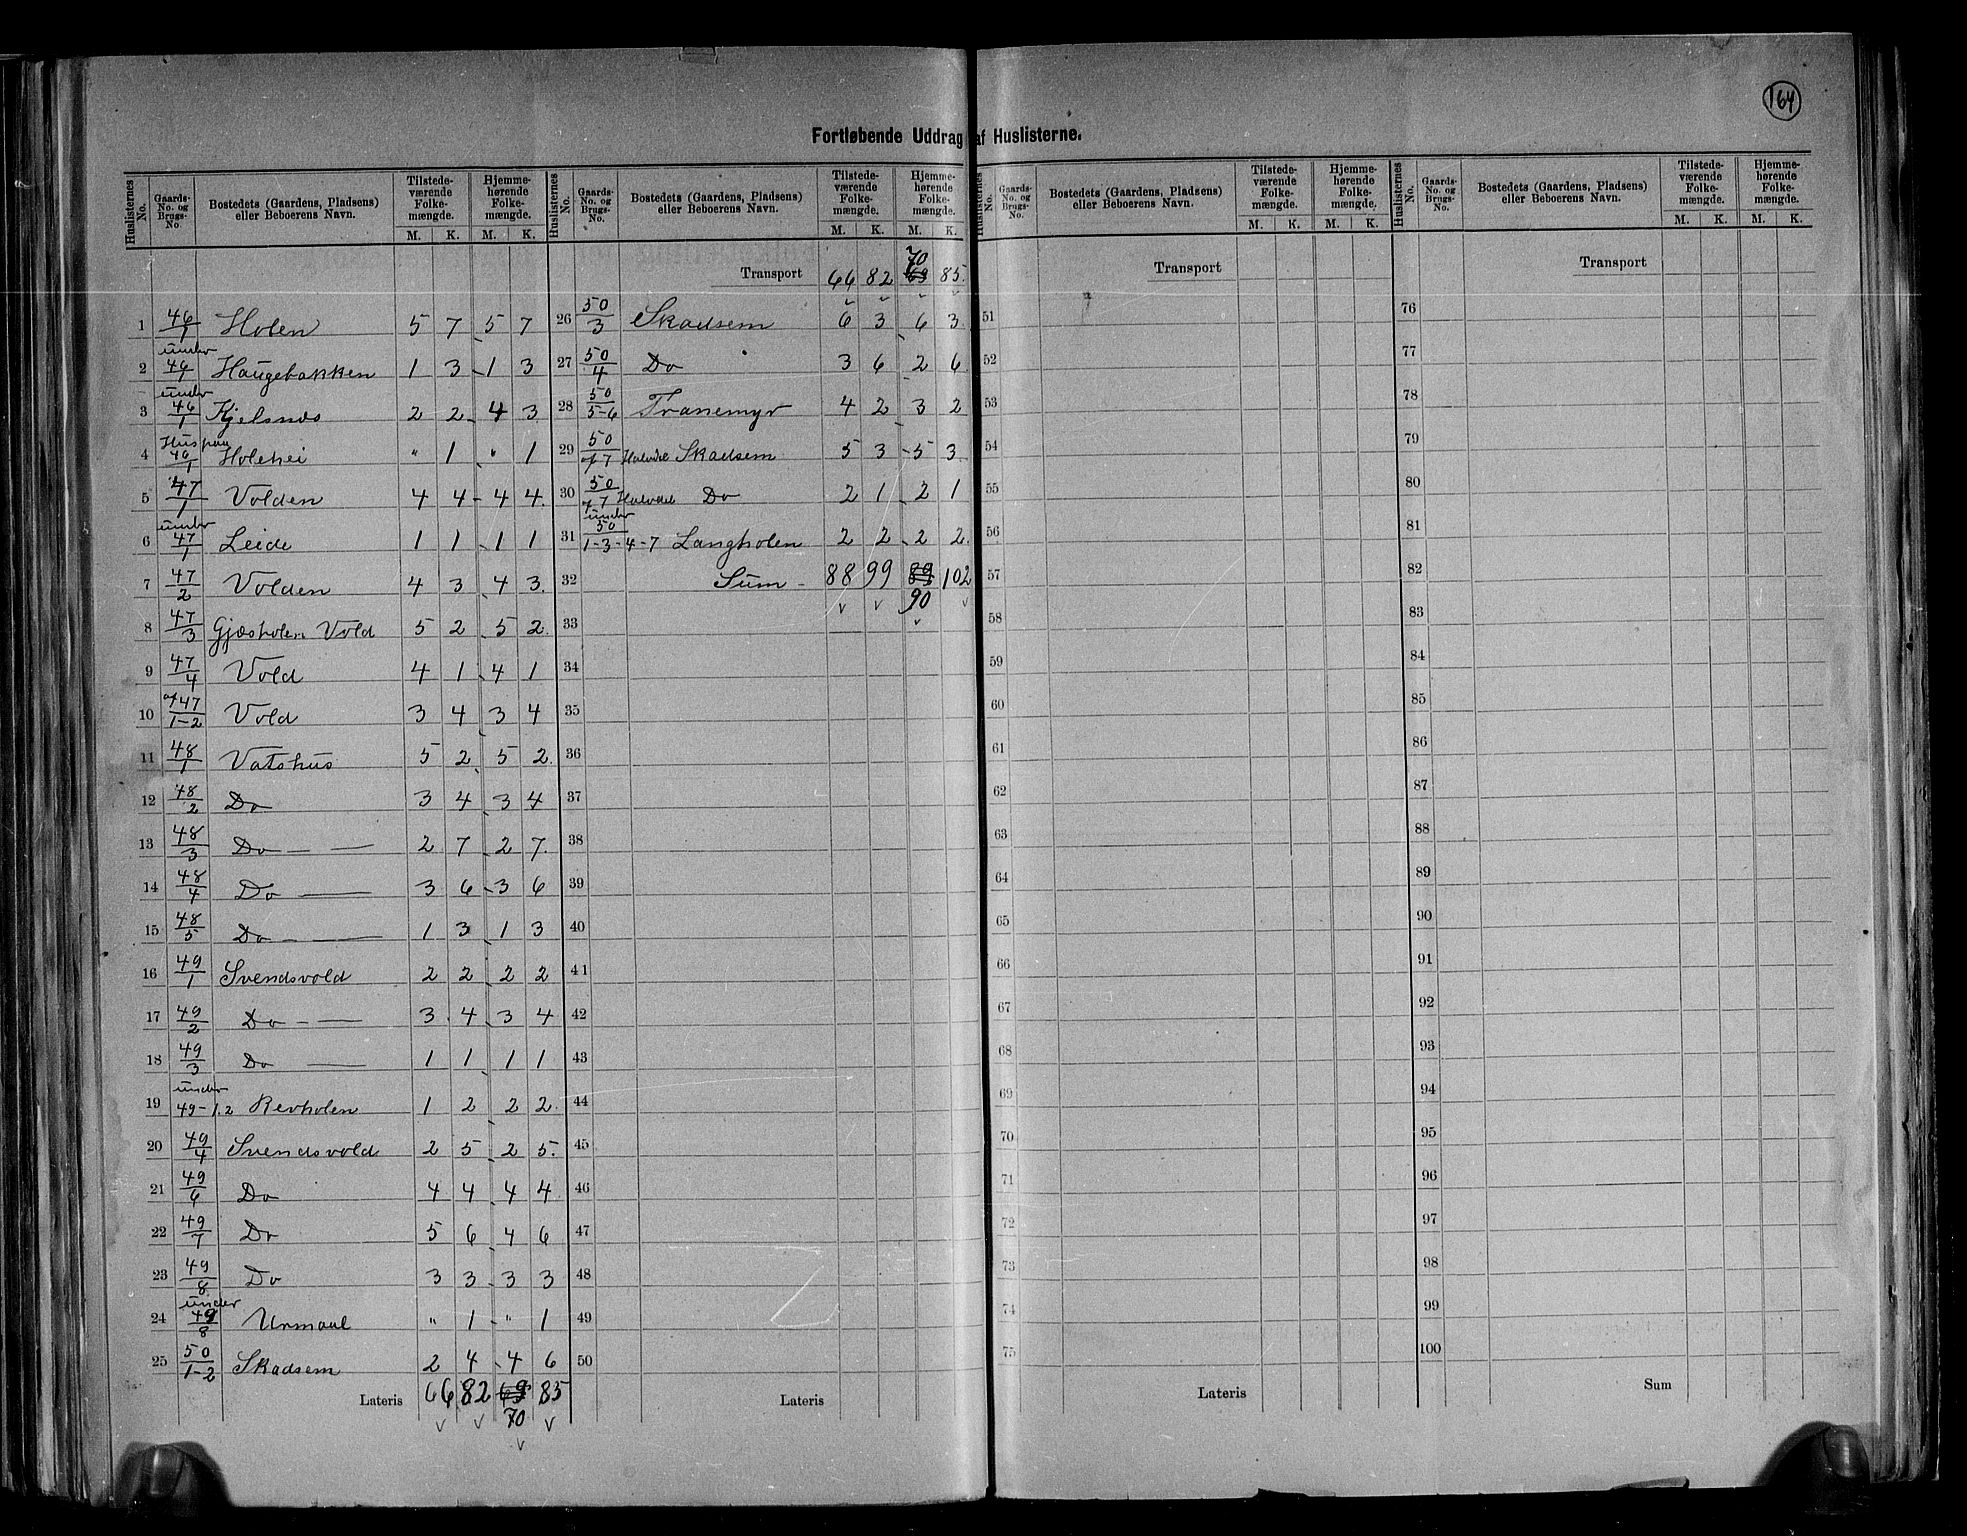 164
Fortløbende Uddrag af Huslisterne.
Huslisternes No. | Gaards-No. og Brugs-No. | Bostedets (Gaardens, Pladsens) eller Beboerens Navn. | Tilstedeværende Folkemængde. M. K. | Hjemmehørende Folkemængde. M. K.
1 | 46/1 | Holen | 5 | 7 | 5 | 7
2 | under 46/1 | Haugebakken | 1 | 3 | 1 | 3
3 | under 46/1 | Kjelsnes | 2 | 2 | 4 | 3
4 | Hus paa 46/1 | Holehei | " | 1 | " | 1
5 | 47/1 | Volden | 4 | 4 | 4 | 4
6 | under 47/1 | Leide | 1 | 1 | 1 | 1
7 | 47/2 | Volden | 4 | 3 | 4 | 3
8 | 47/3 | Gjæsholen Vold | 5 | 2 | 5 | 2
9 | 47/4 | Vold | 4 | 1 | 4 | 1
10 | af 47/1-2 | Vold | 3 | 4 | 3 | 4
11 | 48/1 | Vatshus | 5 | 2 | 5 | 2
12 | 48/2 | Do | 3 | 4 | 3 | 4
13 | 48/3 | Do | 2 | 7 | 2 | 7
14 | 48/4 | Do | 3 | 6 | 3 | 6
15 | 48/5 | Do | 1 | 3 | 1 | 3
16 | 49/1 | Svendsvold | 2 | 2 | 2 | 2
17 | 49/2 | Do | 3 | 4 | 3 | 4
18 | 49/3 | Do | 1 | 1 | 1 | 1
19 | under 49-1.2 | Revholen | 1 | 2 | 2 | 2
20 | 49/4 | Svendsvold | 2 | 5 | 2 | 5
21 | 49/6 | Do | 4 | 4 | 4 | 4
22 | 49/7 | Do | 5 | 6 | 4 | 6
23 | 49/8 | Do | 3 | 3 | 3 | 3
24 | under 49/8 | Urmaal | " | 1 | " | 1
25 | 50/1-2 | Skadsem | 2 | 4 | 4 | 6
Lateris | 66 | 82 | 69 70 | 85
Huslisternes No. | Gaards-No. og Brugs-No. | Bostedets (Gaardens, Pladsens) eller Beboerens Navn. | Tilstedeværende Folkemængde. M. K. | Hjemmehørende Folkemængde. M. K.
Transport | 66 | 82 | 70 69 | 85
26 | 50/3 | Skadsem | 6 | 3 | 6 | 3
27 | 50/4 | Do | 3 | 6 | 2 | 6
28 | 50/5-6 | Tranemyr | 4 | 2 | 3 | 2
29 | 50/af 7 | Halvdel Skadsem | 5 | 3 | 5 | 3
30 | 50/af 7 | Halvdel Do | 2 | 1 | 2 | 1
31 | under 50/1-3-4-7 | Langholen | 2 | 2 | 2 | 2
32 | Sum | 88 | 99 | 89 90 | 102
33
34
35
36
37
38
39
40
41
42
43
44
45
46
47
48
49
50
Lateris
Huslisternes No. | Gaards-No. og Brugs-No. | Bostedets (Gaardens, Pladsens) eller Beboerens Navn. | Tilstedeværende Folkemængde. M. K. | Hjemmehørende Folkemængde. M. K.
Transport
51
52
53
54
55
56
57
58
59
60
61
62
63
64
65
66
67
68
69
70
71
72
73
74
75
Lateris
Huslisternes No. | Gaards-No. og Brugs-No. | Bostedets (Gaardens, Pladsens) eller Beboerens Navn. | Tilstedeværende Folkemængde. M. K. | Hjemmehørende Folkemængde. M. K.
Transport
76
77
78
79
80
81
82
83
84
85
86
87
88
89
90
91
92
93
94
95
96
97
98
99
100
Sum